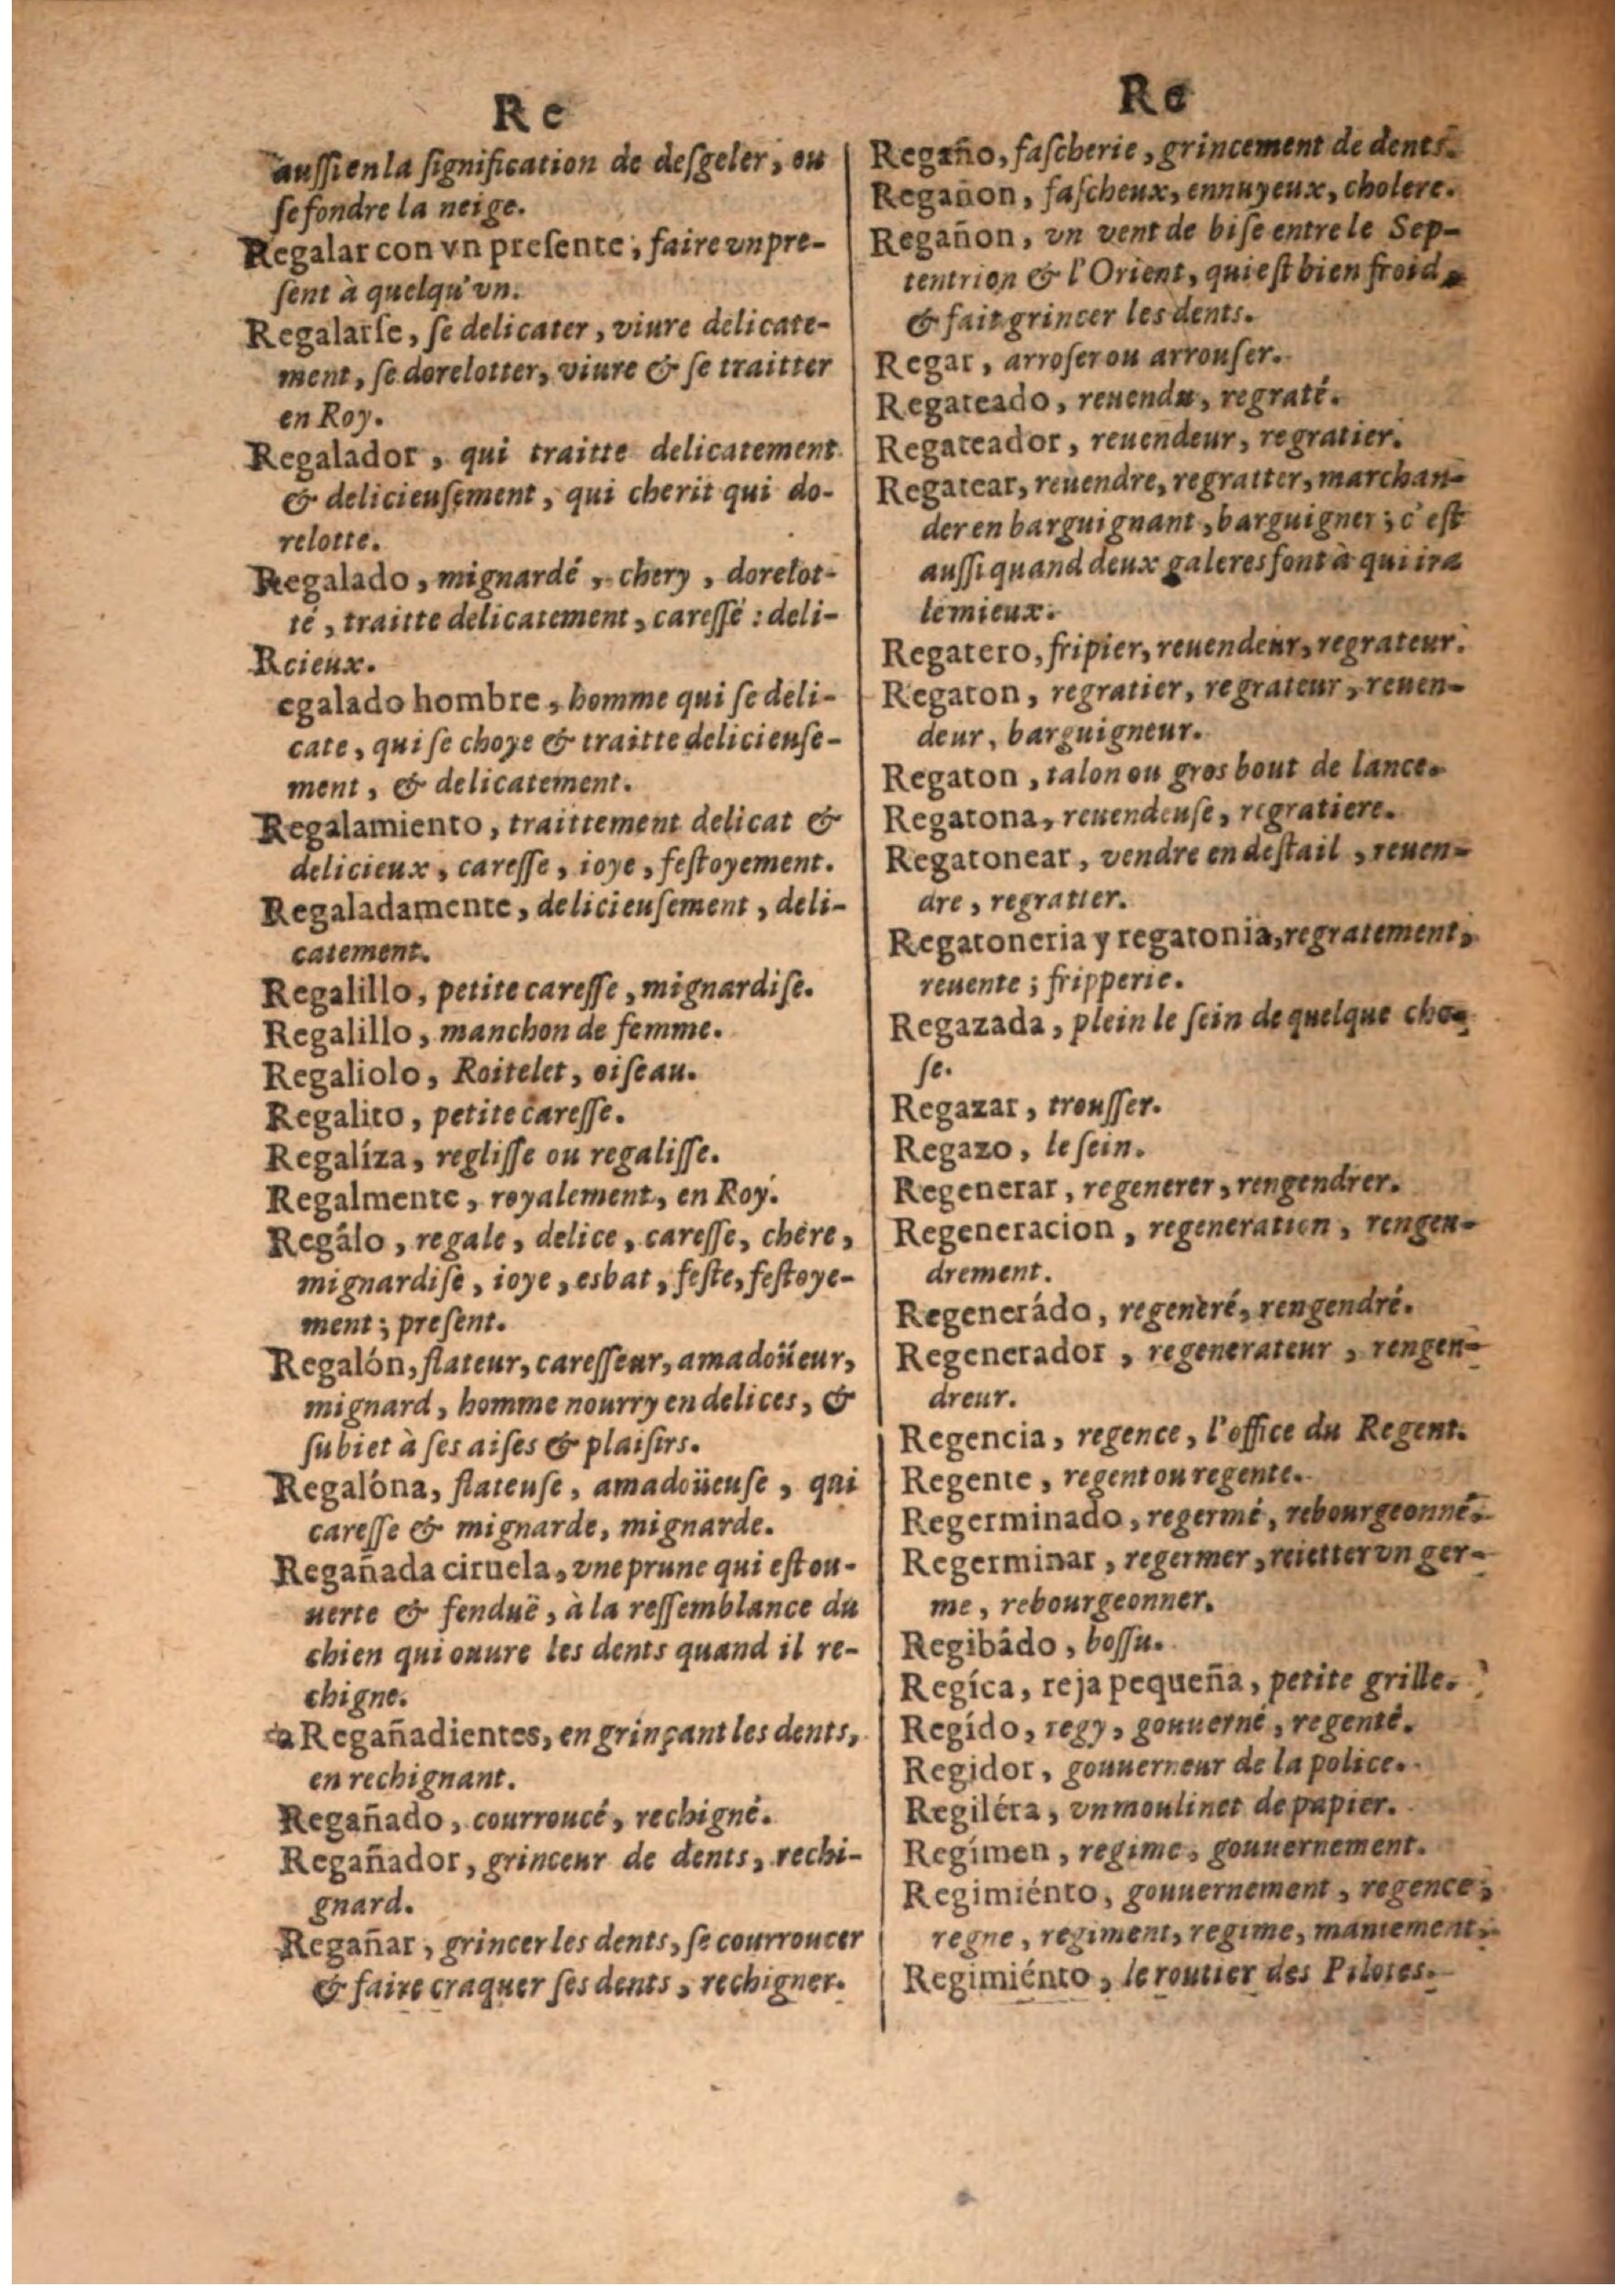 Re
aussi en la signification de desgeler, ou
se fondre la neige.
Regalar con vn presente; faire vn pre-
sent à quelqu'vn.
Regalarse, se delicater, viure delicate-
ment, se dorelotter, viure & se traitter
en Roy.
Regalador, qui traitte delicatement
& delicieusement, qui cherit qui do-
relotte.
Regalado, mignardé, chery, dorelot-
té, traitte delicatement, caressé : deli-
Rcieux.
egalado hombre, homme qui se deli-
cate, qui se choye & traitte delicieuse-
ment, & delicatement.
Regalamiento, traittement delicat &
delicieux, caresse, ioye, festoyement.
Regaladamente, delicieusement, deli-
catement.
Regalillo, petite caresse, mignardise.
Regalillo, manchon de femme.
Regaliolo, Roitelet, oiseau.
Regalito, petite caresse.
Regalíza, reglisse ou regalisse.
Regalmente, royalement, en Roy.
Regálo, regale, delice, caresse, chere,
mignardise, ioye, esbat, feste, festoye-
ment; present.
Regalón, flateur, caresseur, amadoüeur,
mignard, homme nourry en delices, &
subiet à ses aises & plaisirs.
Regalóna, flateuse, amadoüeuse, qui
caresse & mignarde, mignarde.
Regañada ciruela, vne prune qui est ou-
uerte & fenduë, à la ressemblance du
chien qui ouure les dents quand il re-
chigne.
a Regañadientes, en grinçant les dents,
en rechignant.
Regañado, courroucé, rechigné.
Regañador, grinceur de dents, rechi-
gnard.
Regañar, grincer les dents, se courroucer
& faire craquer ses dents, rechigner.
Re
Regaño, fascherie, grincement de dents.
Regañon, fascheux, ennuyeux, cholere.
Regañon, vn vent de bise entre le Sep-
tentrion & l'Orient, qui est bien froid,
& fait grincer les dents.
Regar, arroser ou arrouser.
Regateado, reuendu, regraté.
Regateador, reuendeur, regratier.
Regatear, reuendre, regratter, marchan-
der en barguignant, barguigner; c'est
aussi quand deux galeres font à qui ira
le mieux.
Regatero, fripier, reuendeur, regrateur.
Regaton, regratier, regrateur, reuen-
deur, barguigneur.
Regaton, talon ou gros bout de lance.
Regatona, reuendeuse, regratiere.
Regatonear, vendre en destail, reuen-
dre, regratter.
Regatoneria y regatonia, regratement,
reuente; fripperie.
Regazada, plein le sein de quelque cho-
se.
Regazar, trousser.
Regazo, le sein.
Regenerar, regenerer, rengendrer.
Regeneracion, regeneration, rengen-
drement.
Regenerádo, regeneré, rengendré.
Regenerador, regenerateur, rengen-
dreur.
Regencia, regence, l'office du Regent.
Regente, regent ou regente.
Regerminado, regermé, rebourgeonné.
Regerminar, regermer, reietter vn ger-
me, rebourgeonner.
Regibádo, bossu.
Regíca, reja pequeña, petite grille.
Regído, regy, gouuerné, regenté.
Regidor, gouuerneur de la police.
Regiléra, vn moulinet de papier.
Regímen, regime, gouuernement.
Regimiénto, gouuernement, regence,
regne, regiment, regime, maniement.
Regimiénto, le routier des Pilotes.